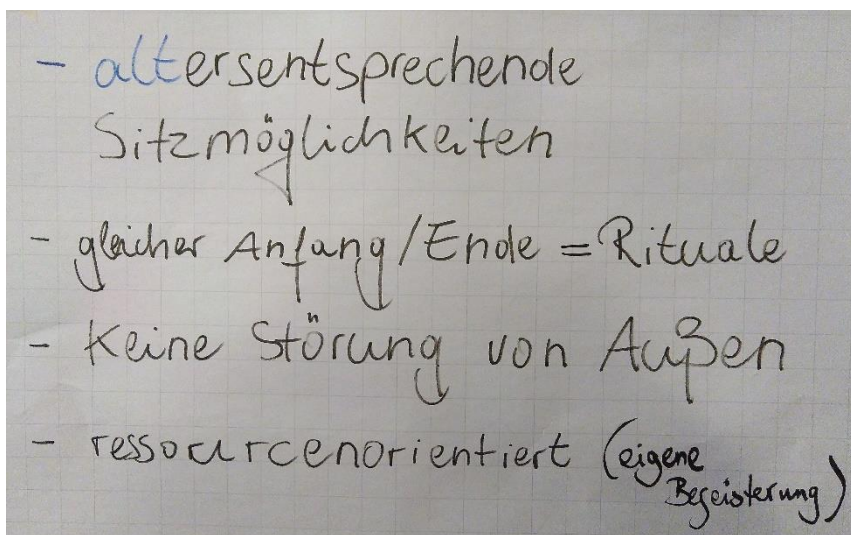 - altersentsprechende
Sitzmöglichkeiten
- gleicher Anfang/Ende = Rituale
- Keine Störung von Außen
- ressourcenorientiert (eigene
Begeisterung)